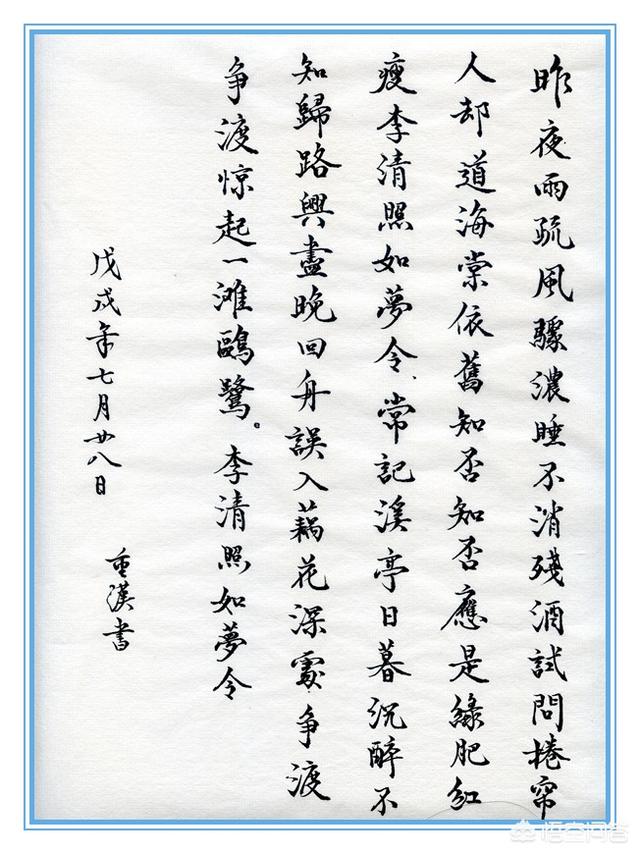 昨夜雨疏風驟濃睡不消殘酒試問捲帘
人却道海棠依舊知否知否應是綠肥紅
瘦李清照如夢令、常記溪亭日暮沉醉不
知歸路興盡晚回舟誤入藕花深處争渡
争渡惊起一滩鷗鷺。李清照如夢令
戊戌年七月廿八日
重漢書
悟空问答